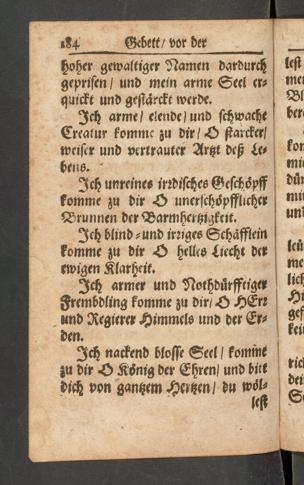 184 Gebett/ vor der
hoher gewaltiger Namen dardurch
geprisen/ und mein arme Seel er-
quickt und gestärckt werde.
Ich arme/ elende/ und schwache
Creatur komme zu dir/ O starcker/
weiser und vertrauter Artzt deß Le-
bens.
Ich unreines irrdisches Geschöpff
komme zu dir O unerschöpfflicher
Brunnen der Barmhertzigkeit.
Ich blind- und irriges Schäfflein
komme zu dir O helles Liecht der
ewigen Klarheit.
Ich armer und Nothdürfftiger
Frembdling komme zu dir/ O HErr
und Regierer Himmels und der Er-
den.
Ich nackend blosse Seel/ kom̄e
zu dir O König der Ehren/ und bitt
dich von gantzem Hertzen/ du wöl-
lest